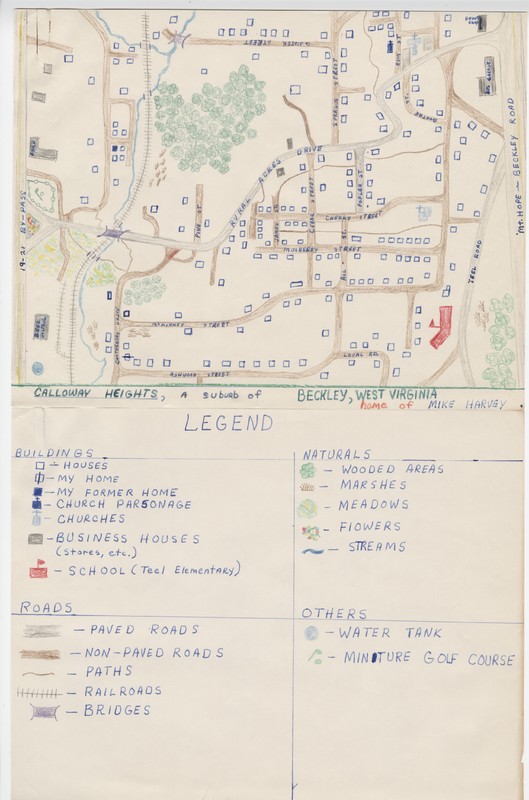 STREET
RURAL ACRES DRIVE
19-21 BY-PASS
Mt. HOPE - BECKLEY ROAD
TEEL ROAD
PINE ST.
CHERRY STREET
MULBERRY STREET
McKINNEY STREET
LOCAL RD.
ASHWOOD STREET
CALLOWAY HEIGHTS, A suburb of BECKLEY, WEST VIRGINIA
home of MIKE HARVEY
LEGEND
BUILDINGS
- HOUSES
- MY HOME
- MY FORMER HOME
- CHURCH PARSONAGE
- CHURCHES
- BUSINESS HOUSES
(Stores, etc.)
- SCHOOL (Teel Elementary)
NATURALS
- WOODED AREAS
- MARSHES
- MEADOWS
- FLOWERS
- STREAMS
ROADS
- PAVED ROADS
- NON-PAVED ROADS
- PATHS
- RAILROADS
- BRIDGES
OTHERS
- WATER TANK
- MINITURE GOLF COURSE